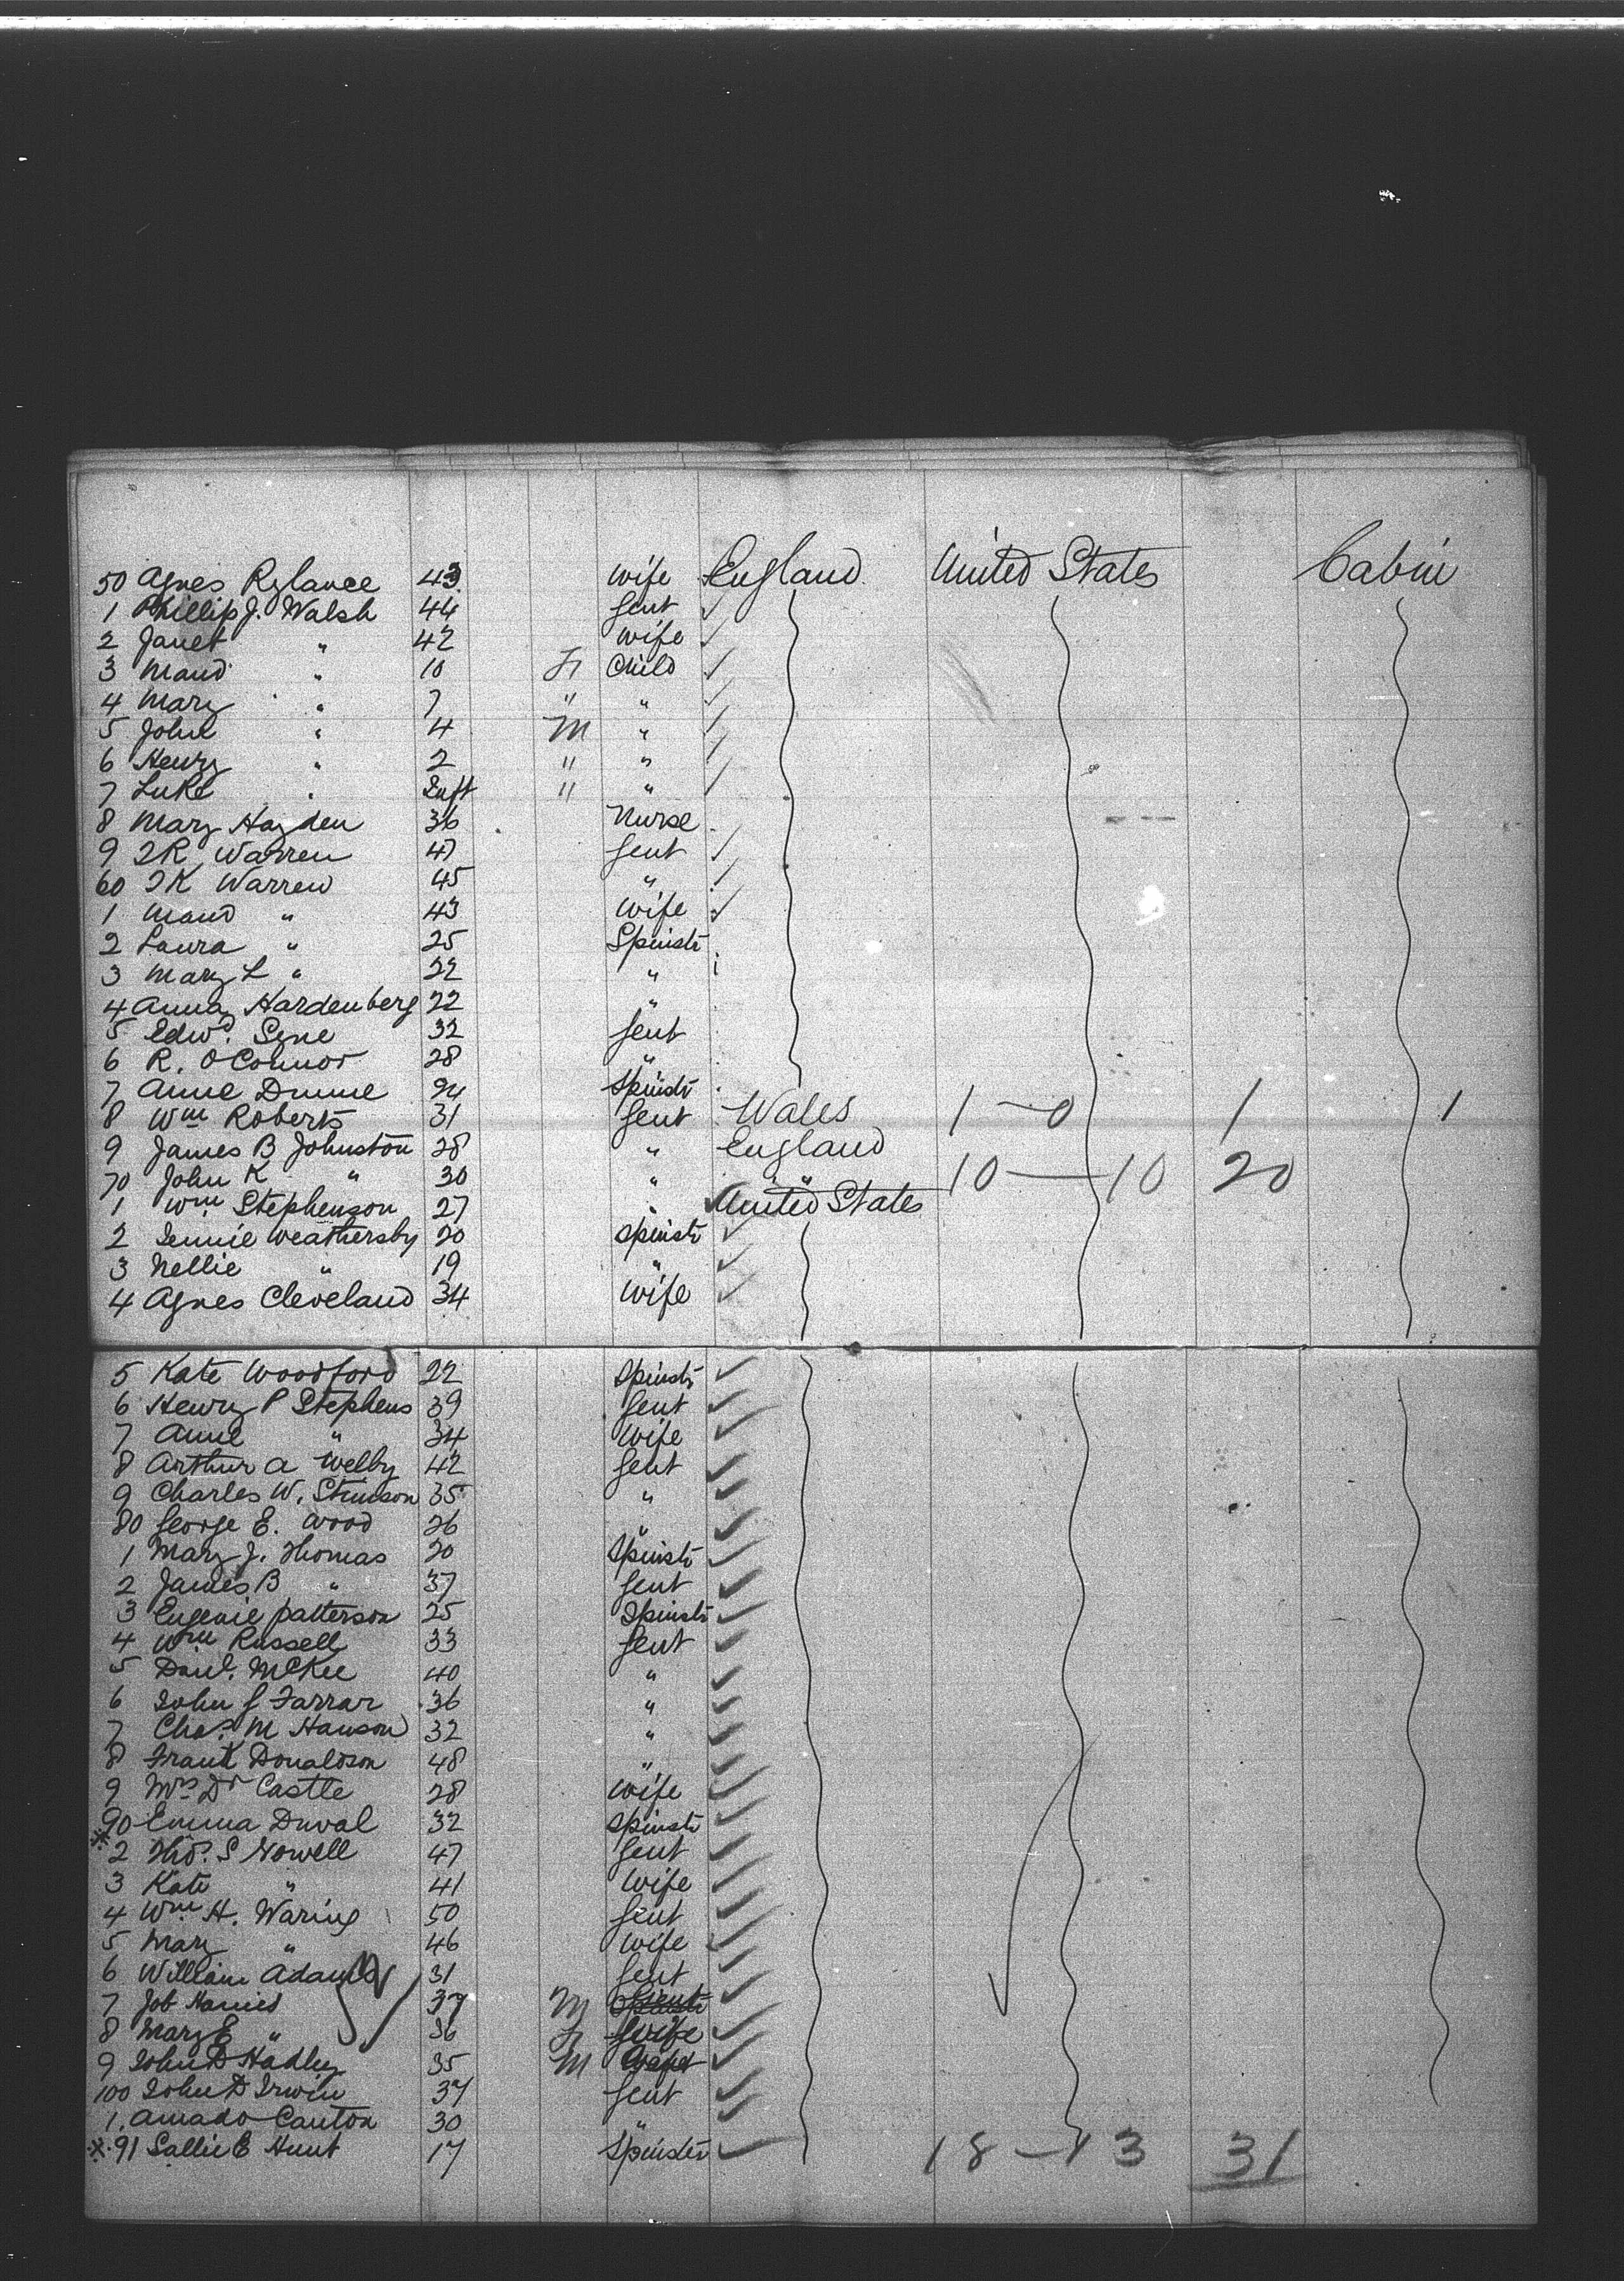 50 Agnes Rylance 43 Wife England United States Cabin
1 Phillip J. Walsh 44 Gent
2 Janet " 42 Wife
3 Maud " 10 F Child
4 Mary " 7 " "
5 John " 4 M "
6 Henry " 2 " "
7 Luke " Inft " "
8 Mary Hayden 36 Nurse
9 I R Warren 47 Gent
60 I K Warren 45 "
1 Maud " 43 Wife
2 Laura " 25 Spinstr
3 Mary L " 22 "
4 Anna Hardenberg 22 "
5 Edwd. Syne 32 Gent
6 R. O'Connor 28 "
7 Anne Dunne 24 Spinstr
8 Wm Roberts 31 Gent Wales 1 — 0 1 1
9 James B Johnston 28 " England
70 John K " 30 " " 10 — 10 20
1 Wm Stephenson 27 " United States
2 Jennie Weathersby 20 Spinstr
3 Nellie " 19 "
4 Agnes Cleveland 34 Wife
5 Kate Woodford 22 Spinstr
6 Henry P Stephens 39 Gent
7 Anne " 34 Wife
8 Arthur A Welby 42 Gent
9 Charles W. Stimson 35 "
80 George E. Wood 26 "
1 Mary J. Thomas 20 Spinstr
2 James B " 37 Gent
3 Eugenie Patterson 25 Spinstr
4 Wm Russell 33 Gent
5 Danl. McKee 40 "
6 John G Farrar 36 "
7 Chas. M Hanson 32 "
8 Frank Donaldson 48 "
9 Mrs Dr Castle 28 Wife
90 Emma Duval 32 Spinstr
※ 2 Tho. S Nowell 47 Gent
3 Kate " 41 Wife
4 Wm H. Waring 50 Gent
5 Mary " 46 Wife
6 William Adams 31 Gent
7 Job 37 M
8 Mary E " 36 F Wife
9 John D Hadley 35 M
100 John D Irwin 37 Gent
1. Amado Canton 30 "
※ 91 Sallie E Hunt 17 Spinstr 18 — 13 31